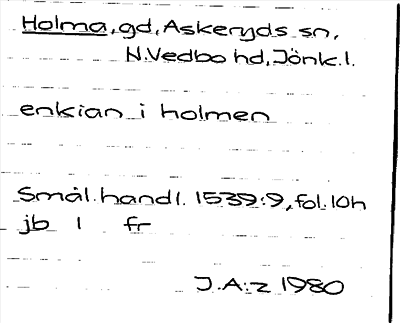 Holma, gd, Askeryds sn,
N. Vedbo hd, Jönk. l.
enkian i holmen
Smål. handl. 1539:9, fol. 10h
jb 1 fr
J.A:z 1980